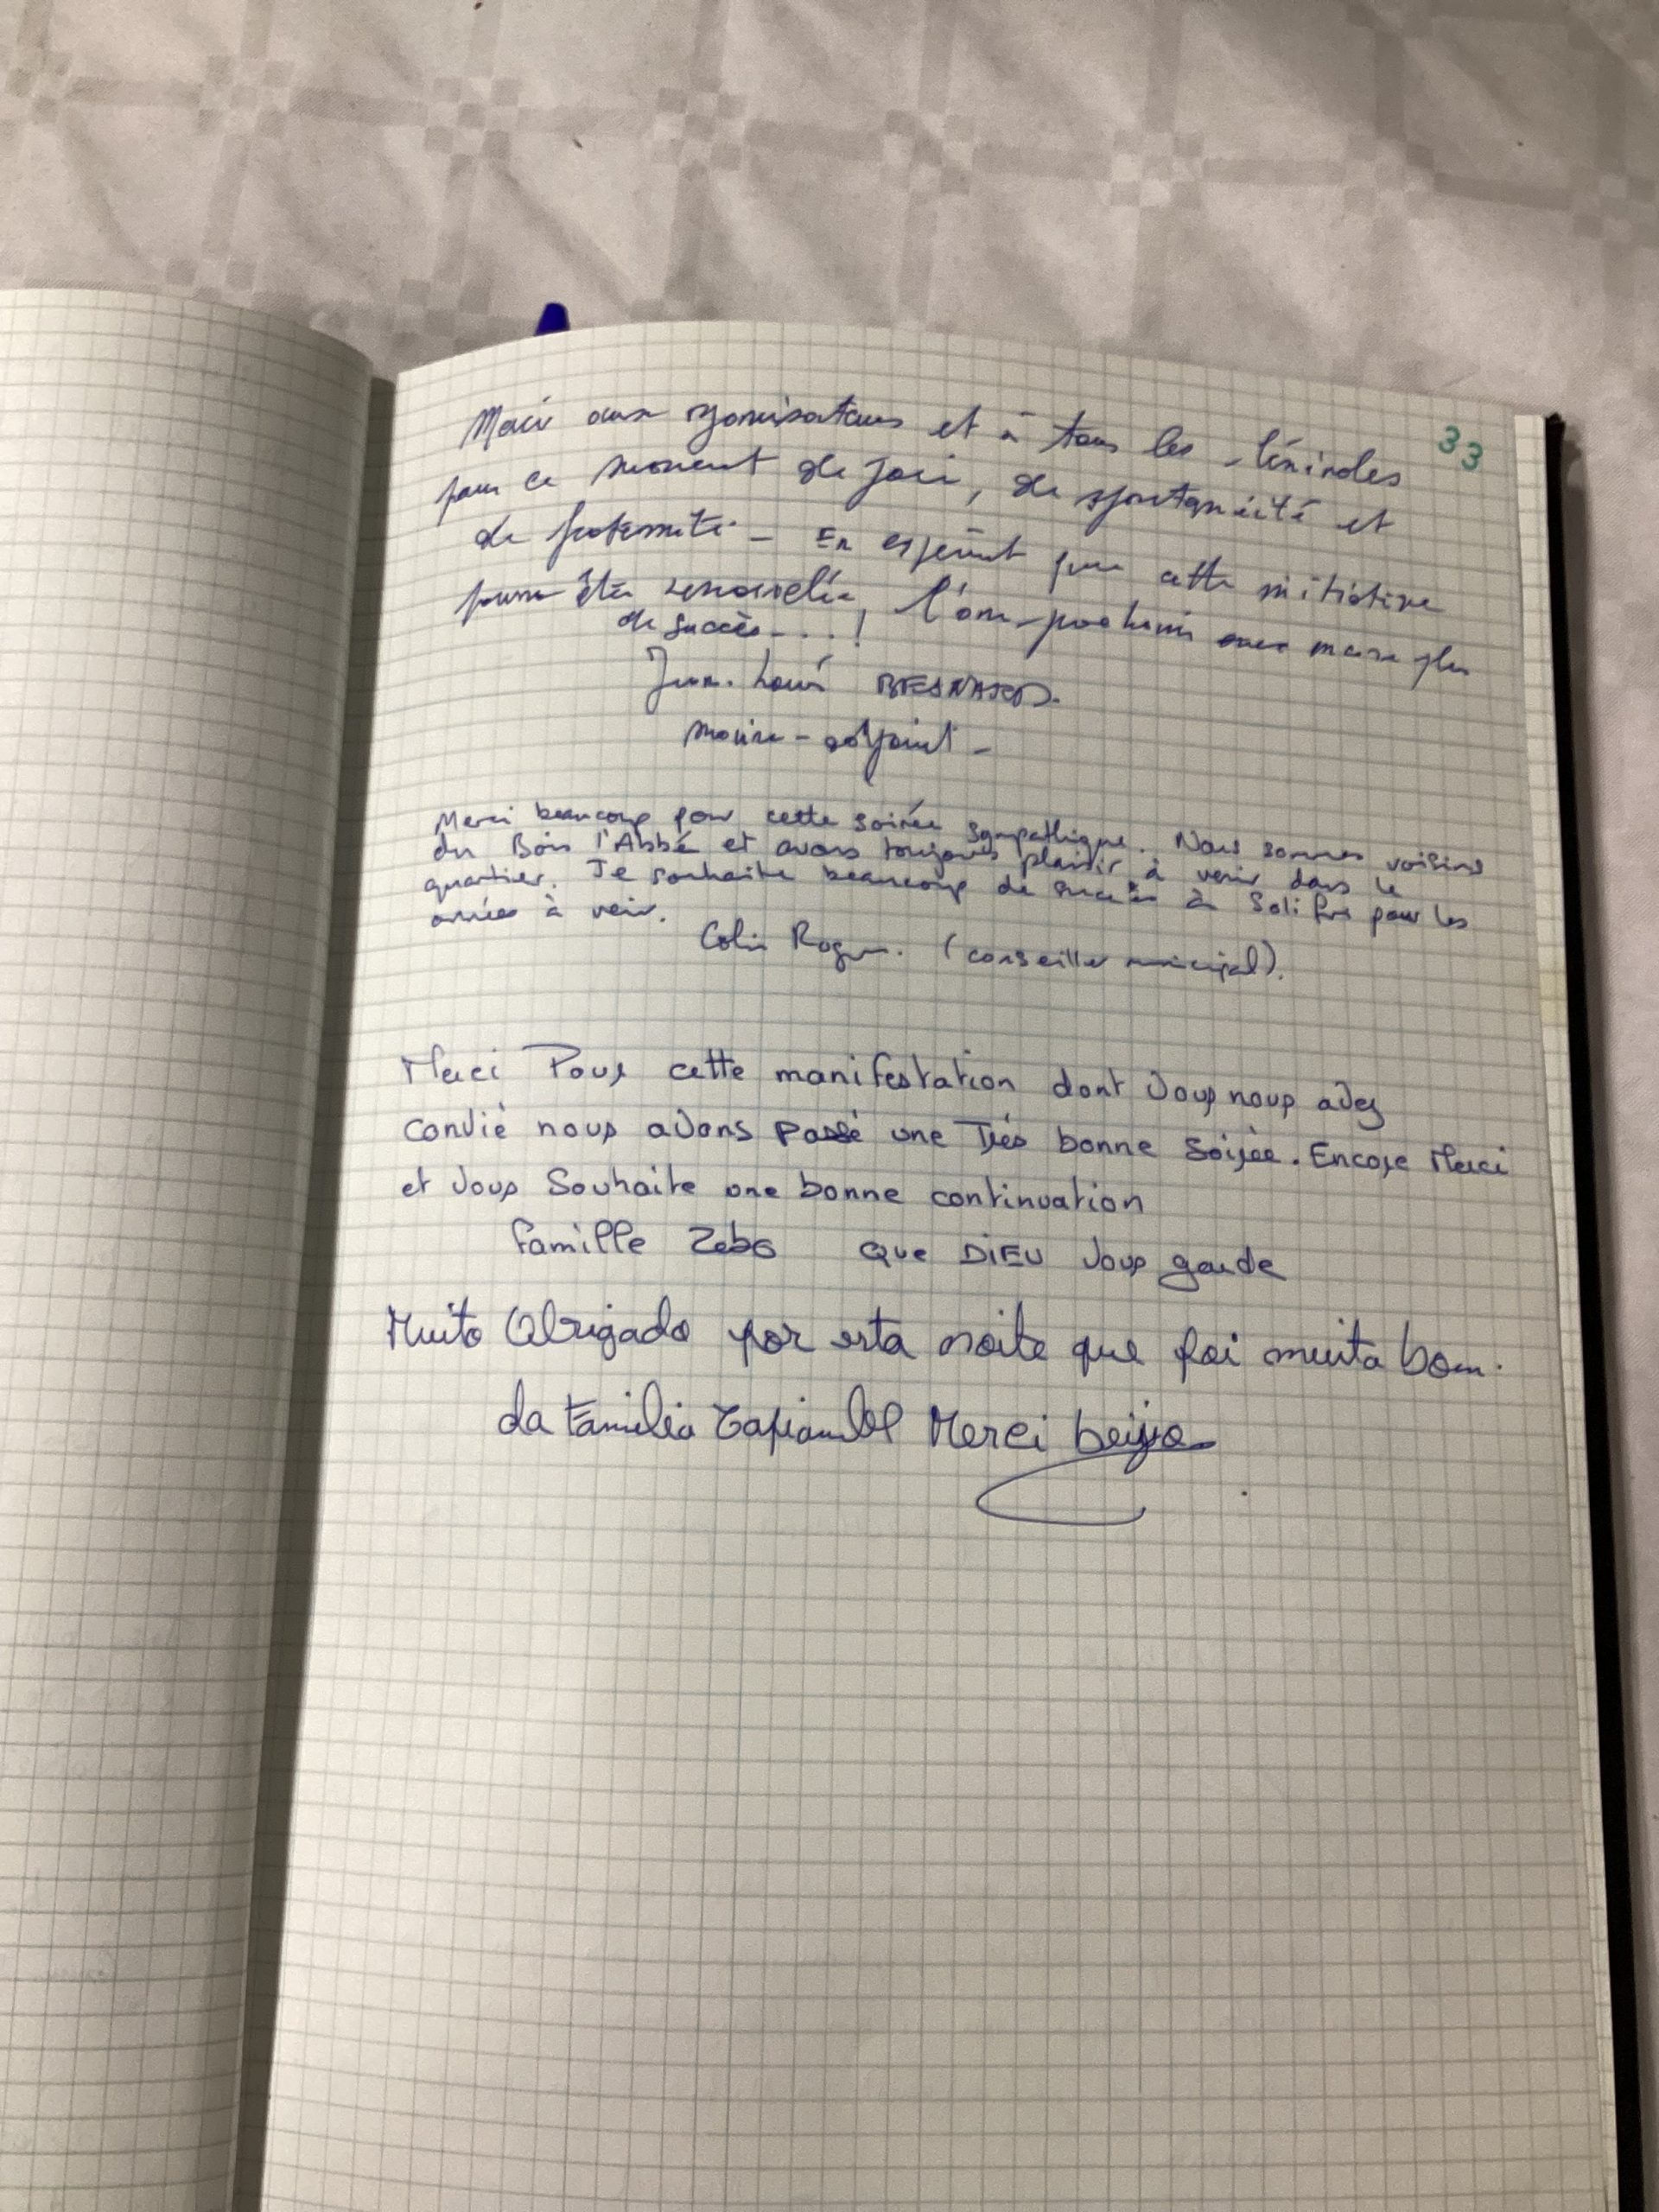 33
Merci aux organisateurs et à tous les bénévoles
pour ce moment de joie, de spontanéité et
de fraternité - En espérant que cette initiative
pourra être renouvelée, l'an prochain avec encore plus
de succès... !
Jean-Louis BESNARD.
maire-adjoint -
Merci beaucoup pour cette soirée sympathique. Nous sommes voisins
du Bois l'Abbé et avons toujours plaisir à venir dans le
quartier. Je souhaite beaucoup de succès à pour les
années à venir.
Colin (conseiller municipal).
Merci Pour cette manifestation dont vous nous avez
convié nous avons passé une Très bonne soirée. Encore Merci
et vous Souhaite une bonne continuation
famille Zebo que DIEU vous garde
Muito Obrigado por esta noite que foi muita bom.
da Familia Merci beijo